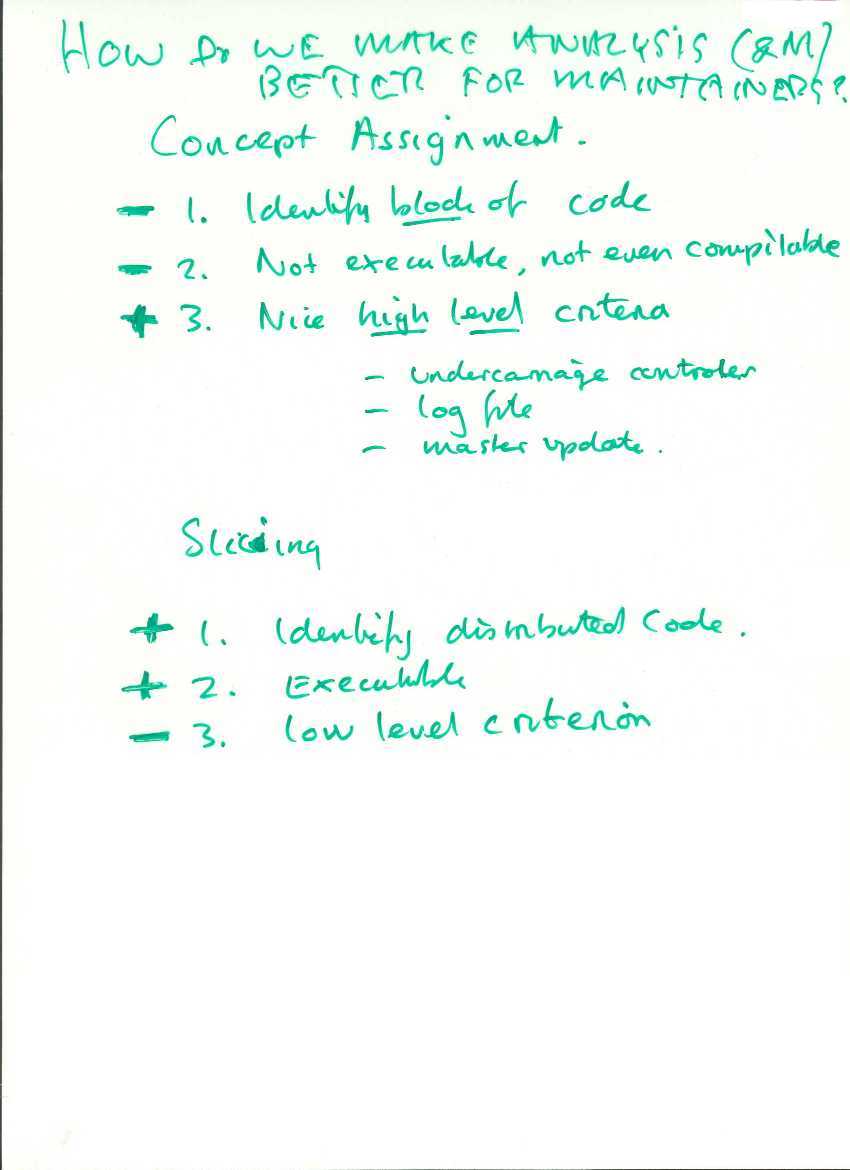 HOW DO WE MAKE ANALYSIS (&M)
BETTER FOR MAINTAINERS?
Concept Assignment.
- 1. Identify block of code
- 2. Not executable, not even compilable
+ 3. Nice high level criteria
- undercarriage controller
- log file
- master update.
Slicing
+ 1. Identify distributed Code.
+ 2. Executable
- 3. low level criterion